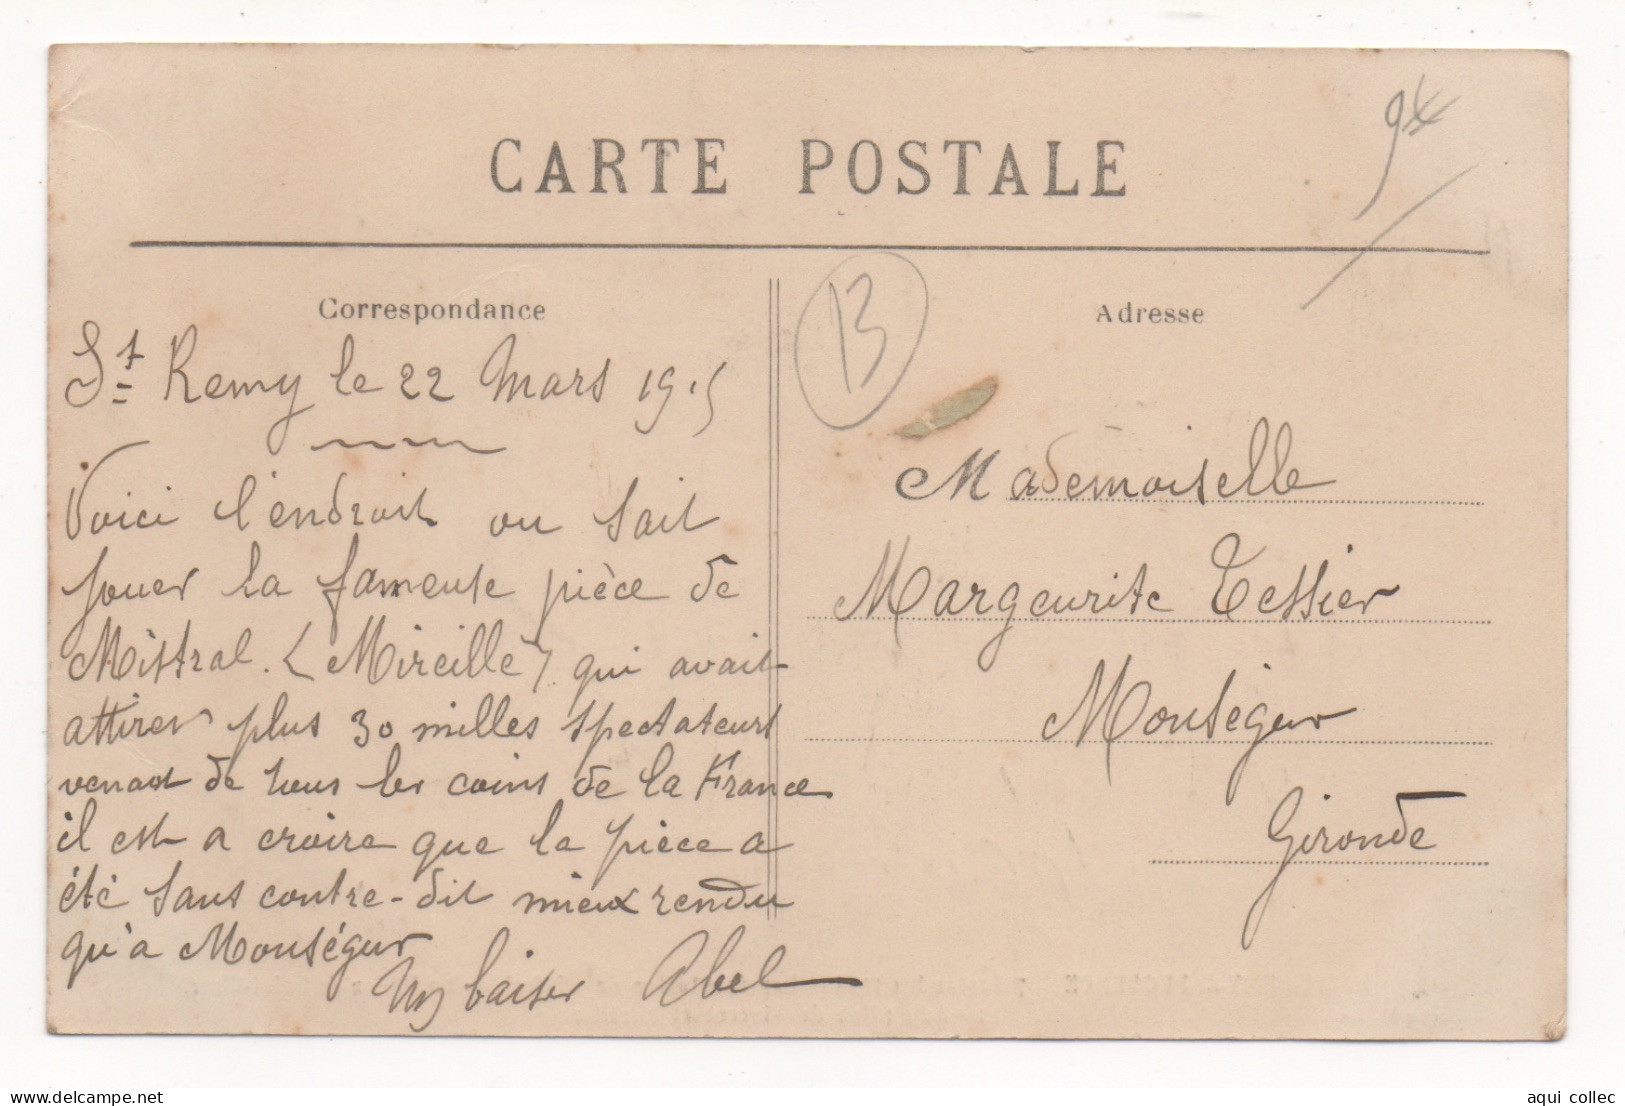 CARTE POSTALE
94
13
Correspondance
St Remy le 22 Mars 1915
Voici l'endroit ou sait
jouer la fameuse pièce de
Mistral. (Mireille) qui avait
attirer plus 30 milles spectateurs
venant de tous les coins de la France
il est a croire que la pièce a
été sans contre-dit mieux rendu
qu'a Monségur
Un baiser Abel
Adresse
Mademoiselle
Margeurite Tessier
Monségur
Gironde
delcampe.net
aqui collec